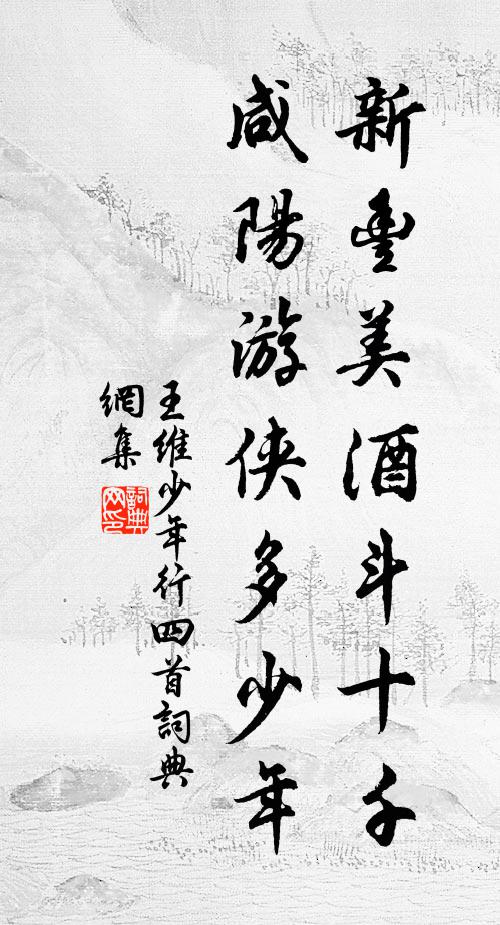 新豐美酒斗十千
咸陽游俠多少年
王維少年行四首詞典
網集
詞典網印